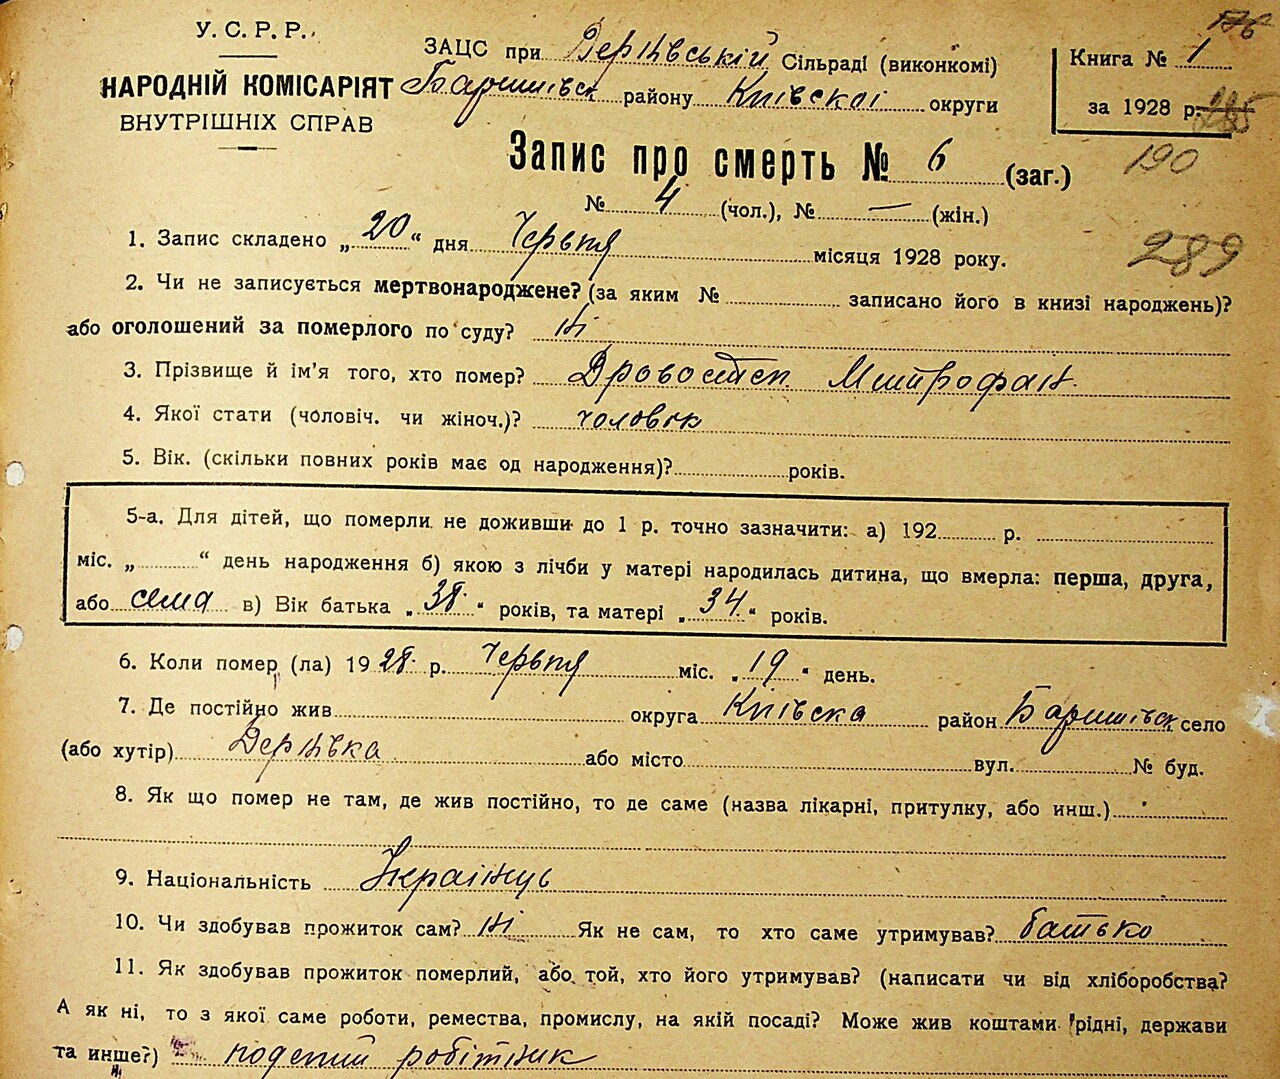 У. С. Р. Р.
НАРОДНІЙ КОМІСАРІЯТ
ВНУТРІШНІХ СПРАВ
ЗАЦС при Дернівській Сільраді (виконкомі)
Баришівск району Київскої округи
176
Книга № 1
за 1928 р. 285
190
Запис про смерть № 6 (заг.)
№ 4 (чол.), № — (жін.)
289
1. Запис складено „20“ дня Червня місяця 1928 року.
2. Чи не записується мертвонароджене? (за яким № записано його в книзі народжень)?
або оголошений за померлого по суду? Ні
3. Прізвище й ім'я того, хто помер? Дровостєп Митрофан.
4. Якої стати (чоловіч. чи жіноч.)? чоловік
5. Вік. (скільки повних років має од народження)? років.
5-а. Для дітей, що померли не доживши до 1 р. точно зазначити: а) 192 р.
міс. „ “ день народження б) якою з лічби у матері народилась дитина, що вмерла: перша, друга,
або сема в) Вік батька „38“ років, та матері „34“ років.
6. Коли помер (ла) 1928 р. Червня міс. „19“ день.
7. Де постійно жив округа Київска район Баришівск село
(або хутір) Дернівка або місто вул. № буд.
8. Як що помер не там, де жив постійно, то де саме (назва лікарні, притулку, або инш.)
9. Національність Українць
10. Чи здобував прожиток сам? Ні Як не сам, то хто саме утримував? батько
11. Як здобував прожиток померлий, або той, хто його утримував? (написати чи від хліборобства?
А як ні, то з якої саме роботи, ремества, промислу, на якій посаді? Може жив коштами рідні, держави
та инше?) подений робітник